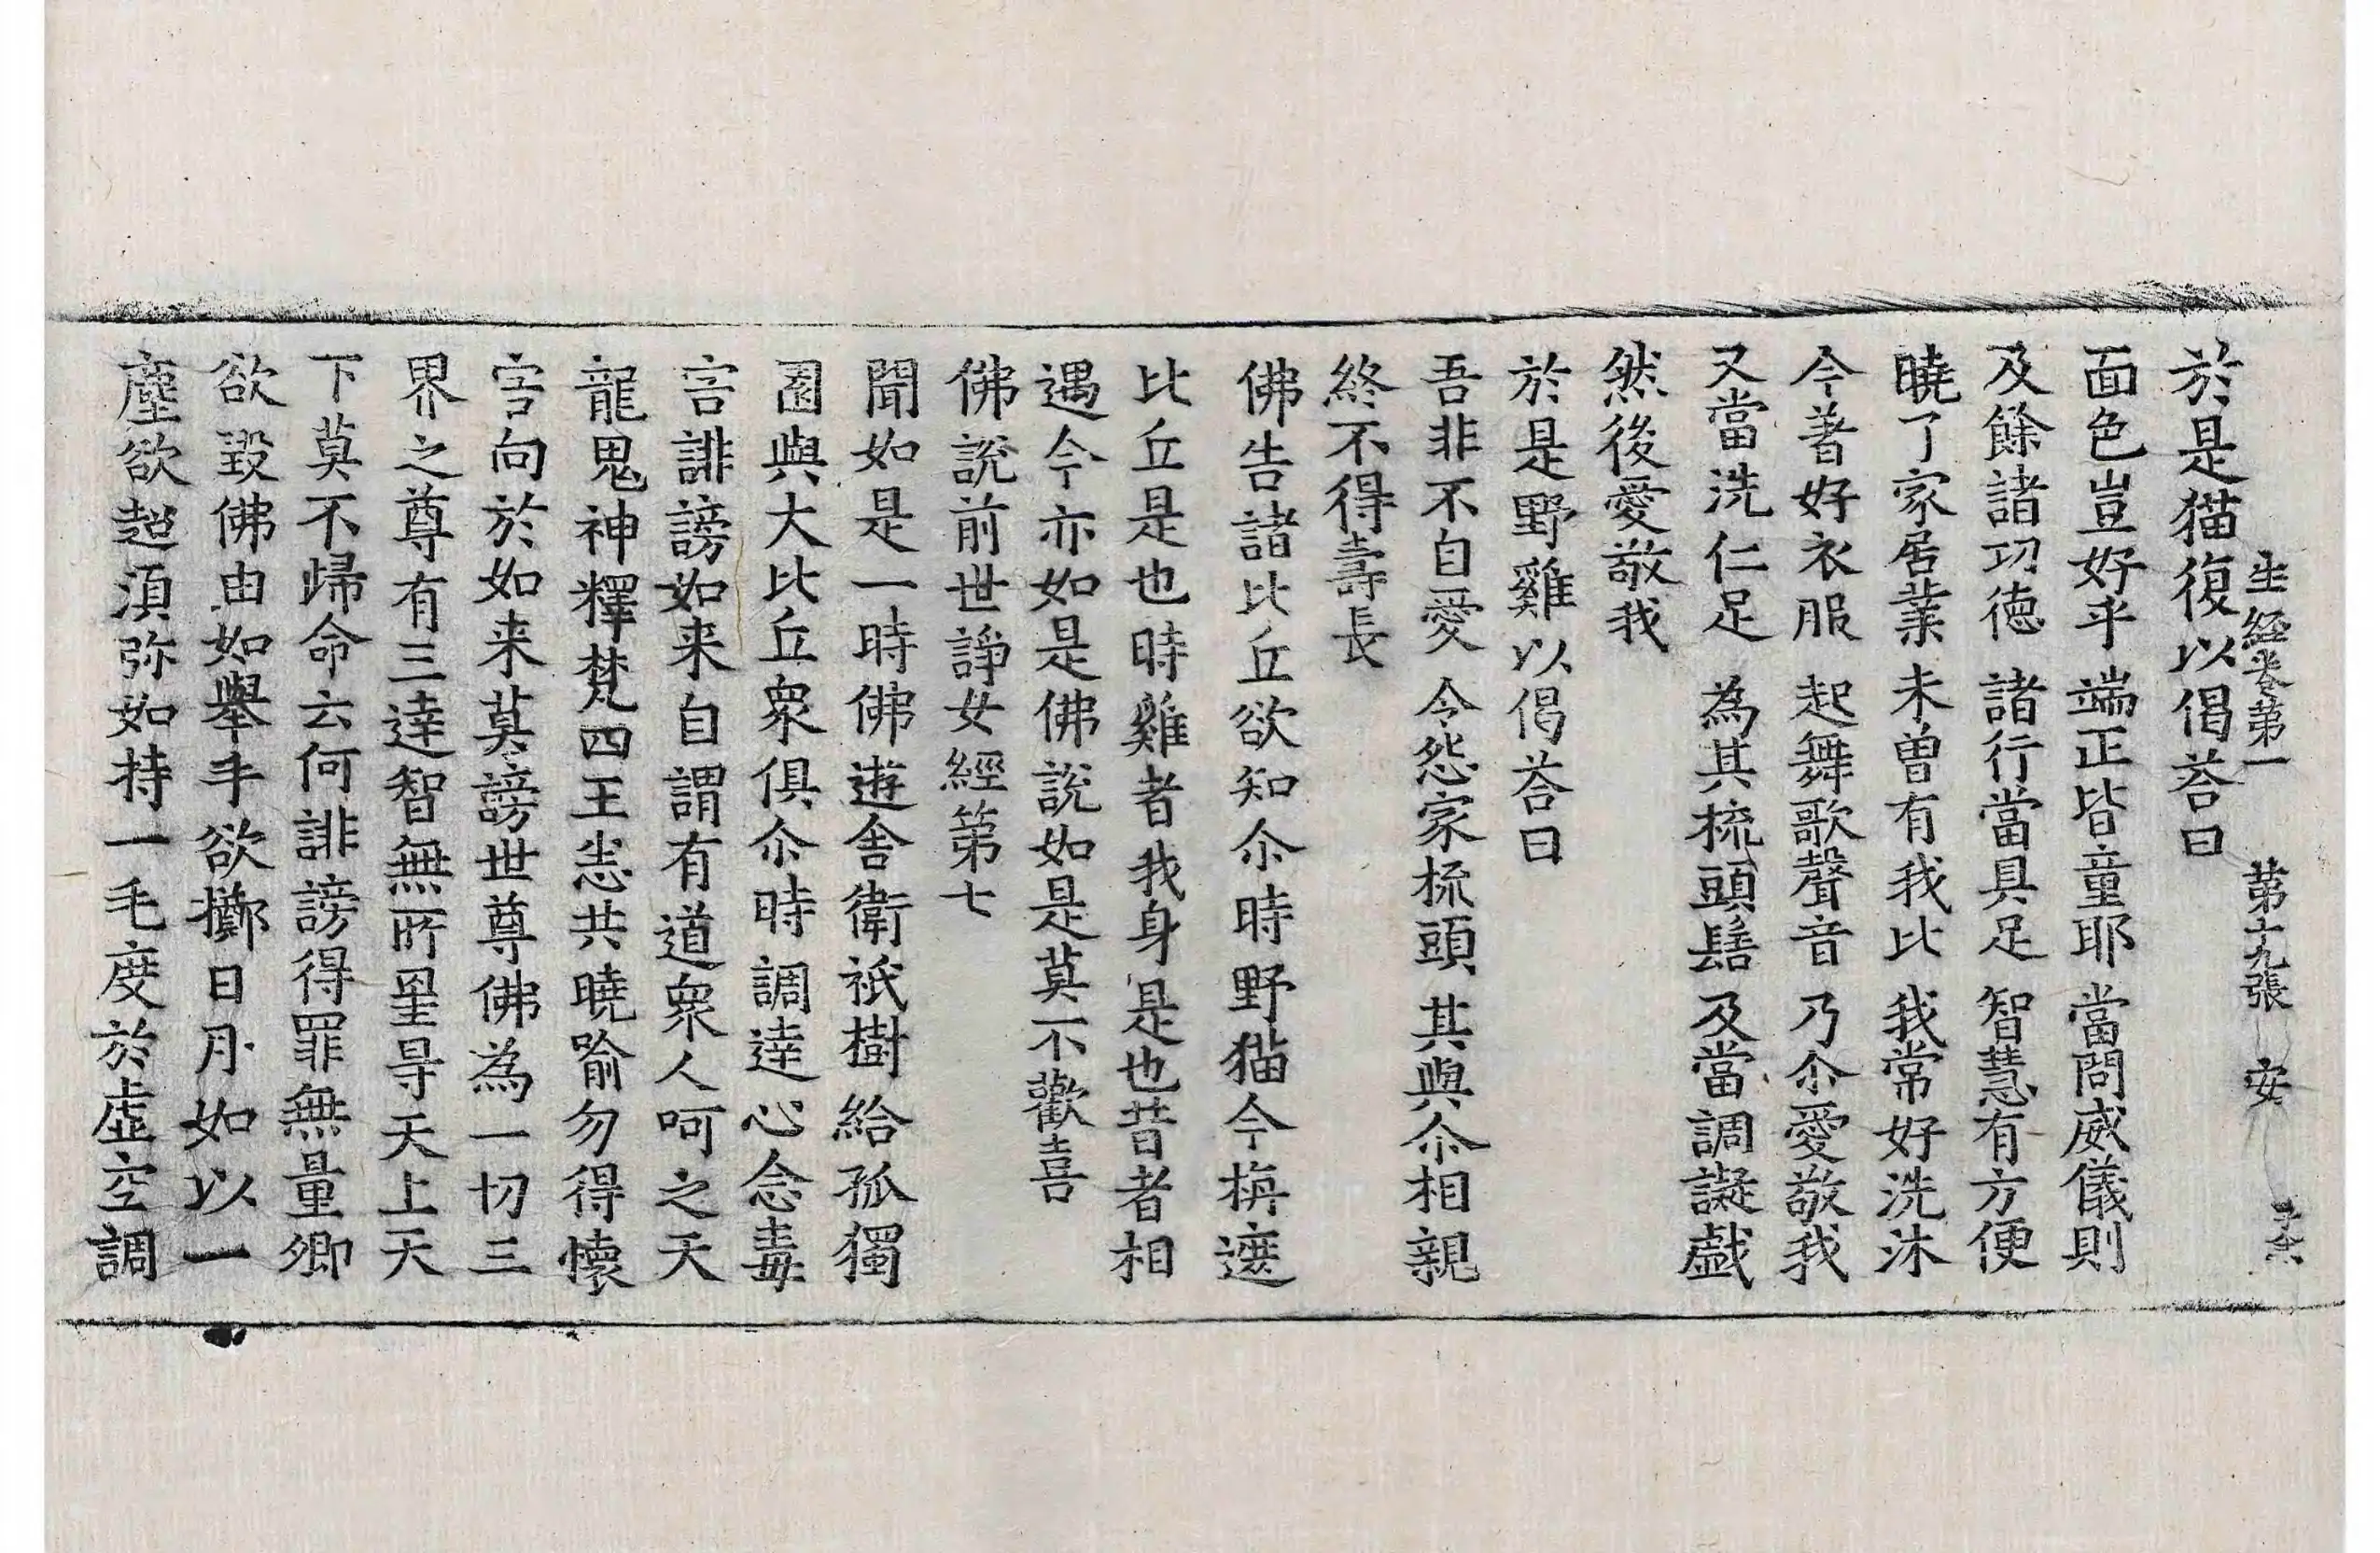 生經卷第一 第十九張 安
於是猫復以偈荅曰
面色豈好乎 端正皆童耶 當問威儀則
及餘諸功徳 諸行當具足 智慧有方便
曉了家居業 未曾有我比 我常好洗沐
今著好衣服 起舞歌聲音 乃尒愛敬我
又當洗仁足 為其梳頭髻 及當調譺戲
然後愛敬我
於是野雞以偈荅曰
吾非不自愛 令怨家梳頭 其與尒相親
終不得壽長
佛告諸比丘欲知尒時野猫今栴遮
比丘是也時雞者我身是也昔者相
遇今亦如是佛說如是莫不歡喜
佛說前世諍女經第七
聞如是一時佛遊舍衛祇樹給孤獨
園與大比丘衆俱尒時調達心念毒
害誹謗如来自謂有道衆人呵之天
龍鬼神釋梵四王悉共曉喻勿得懷
害向於如来莫謗世尊佛為一切三
界之尊有三達智無所罣㝵天上天
下莫不歸命云何誹謗得罪無量卿
欲毀佛由如舉手欲擲日月如以一
塵欲超須弥如持一毛度於虛空調